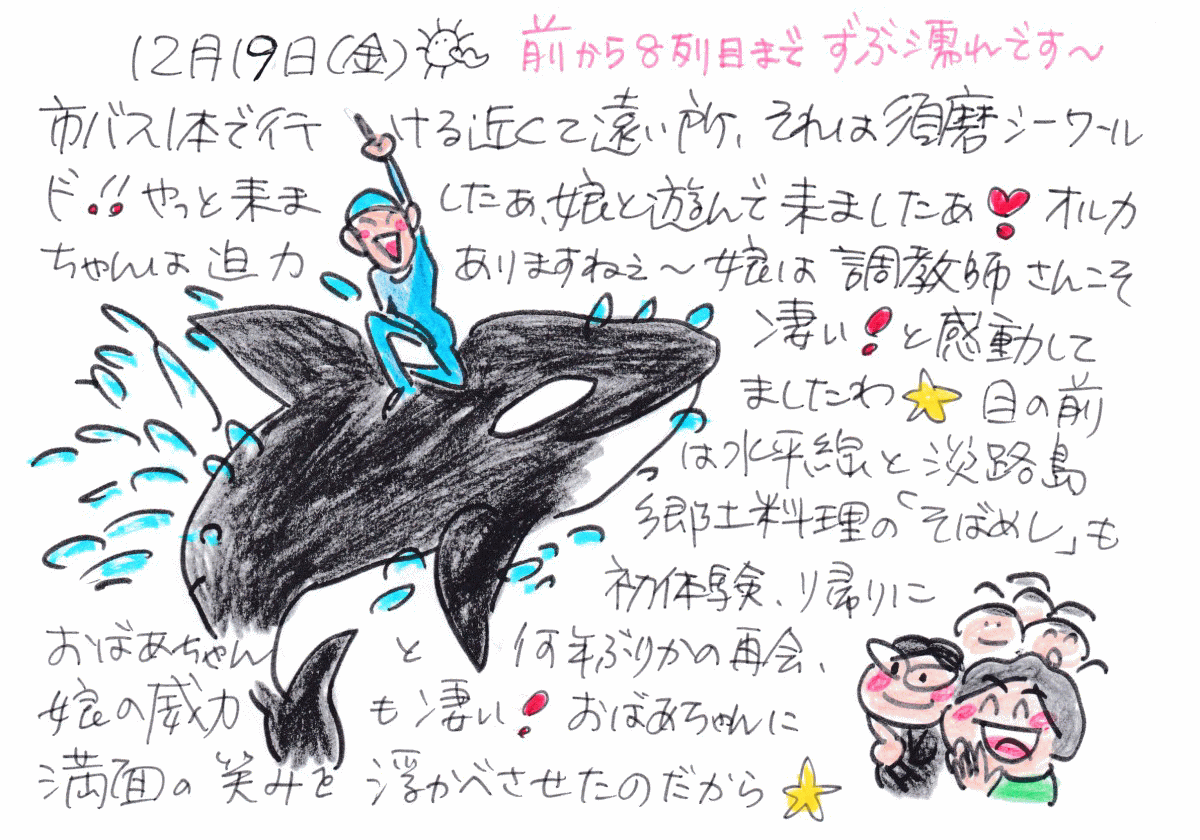 12月19日(金) 前から8列目まで ずぶ濡れです～
市バス1本で行ける近くて遠い所、それは須磨シーワール
ド!! やっと来ましたぁ、娘と遊んで来ましたぁ オルカ
ちゃんは迫力ありますねぇ～ 娘は調教師さんこそ
凄い！と感動して
ましたわ 目の前
は水平線と淡路島
郷土料理の「そばめし」も
初体験、り帰りに
おばあちゃんと何年ぶりかの再会、
娘の威力も凄い！おばあちゃんに
満面の笑みを浮かべさせたのだから